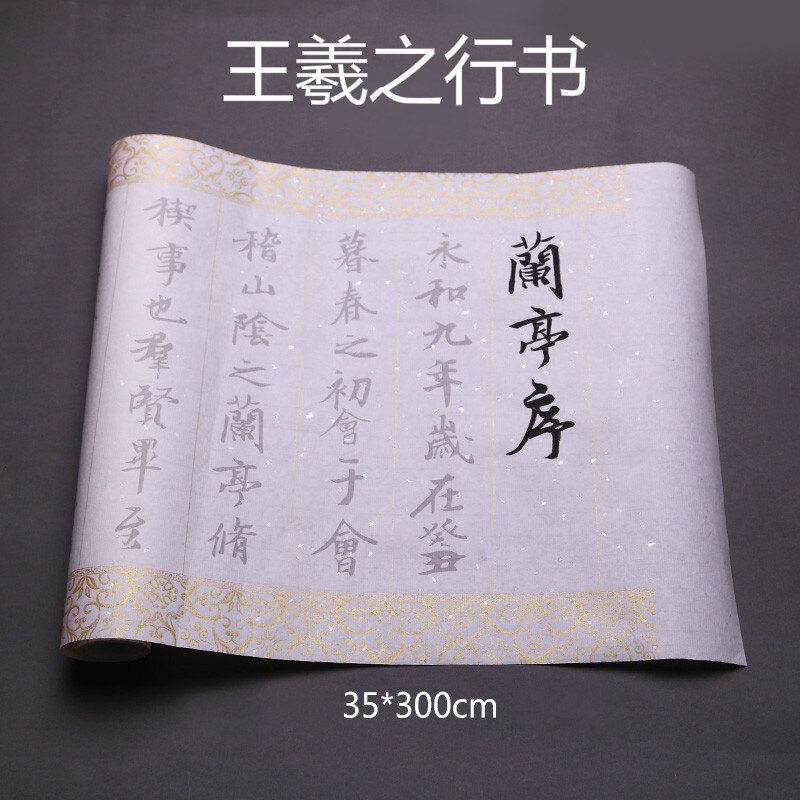 王羲之行书
蘭亭序
永和九年歲在癸丑
暮春之初會于會
稽山陰之蘭亭脩
稧事也羣賢畢至
35*300cm